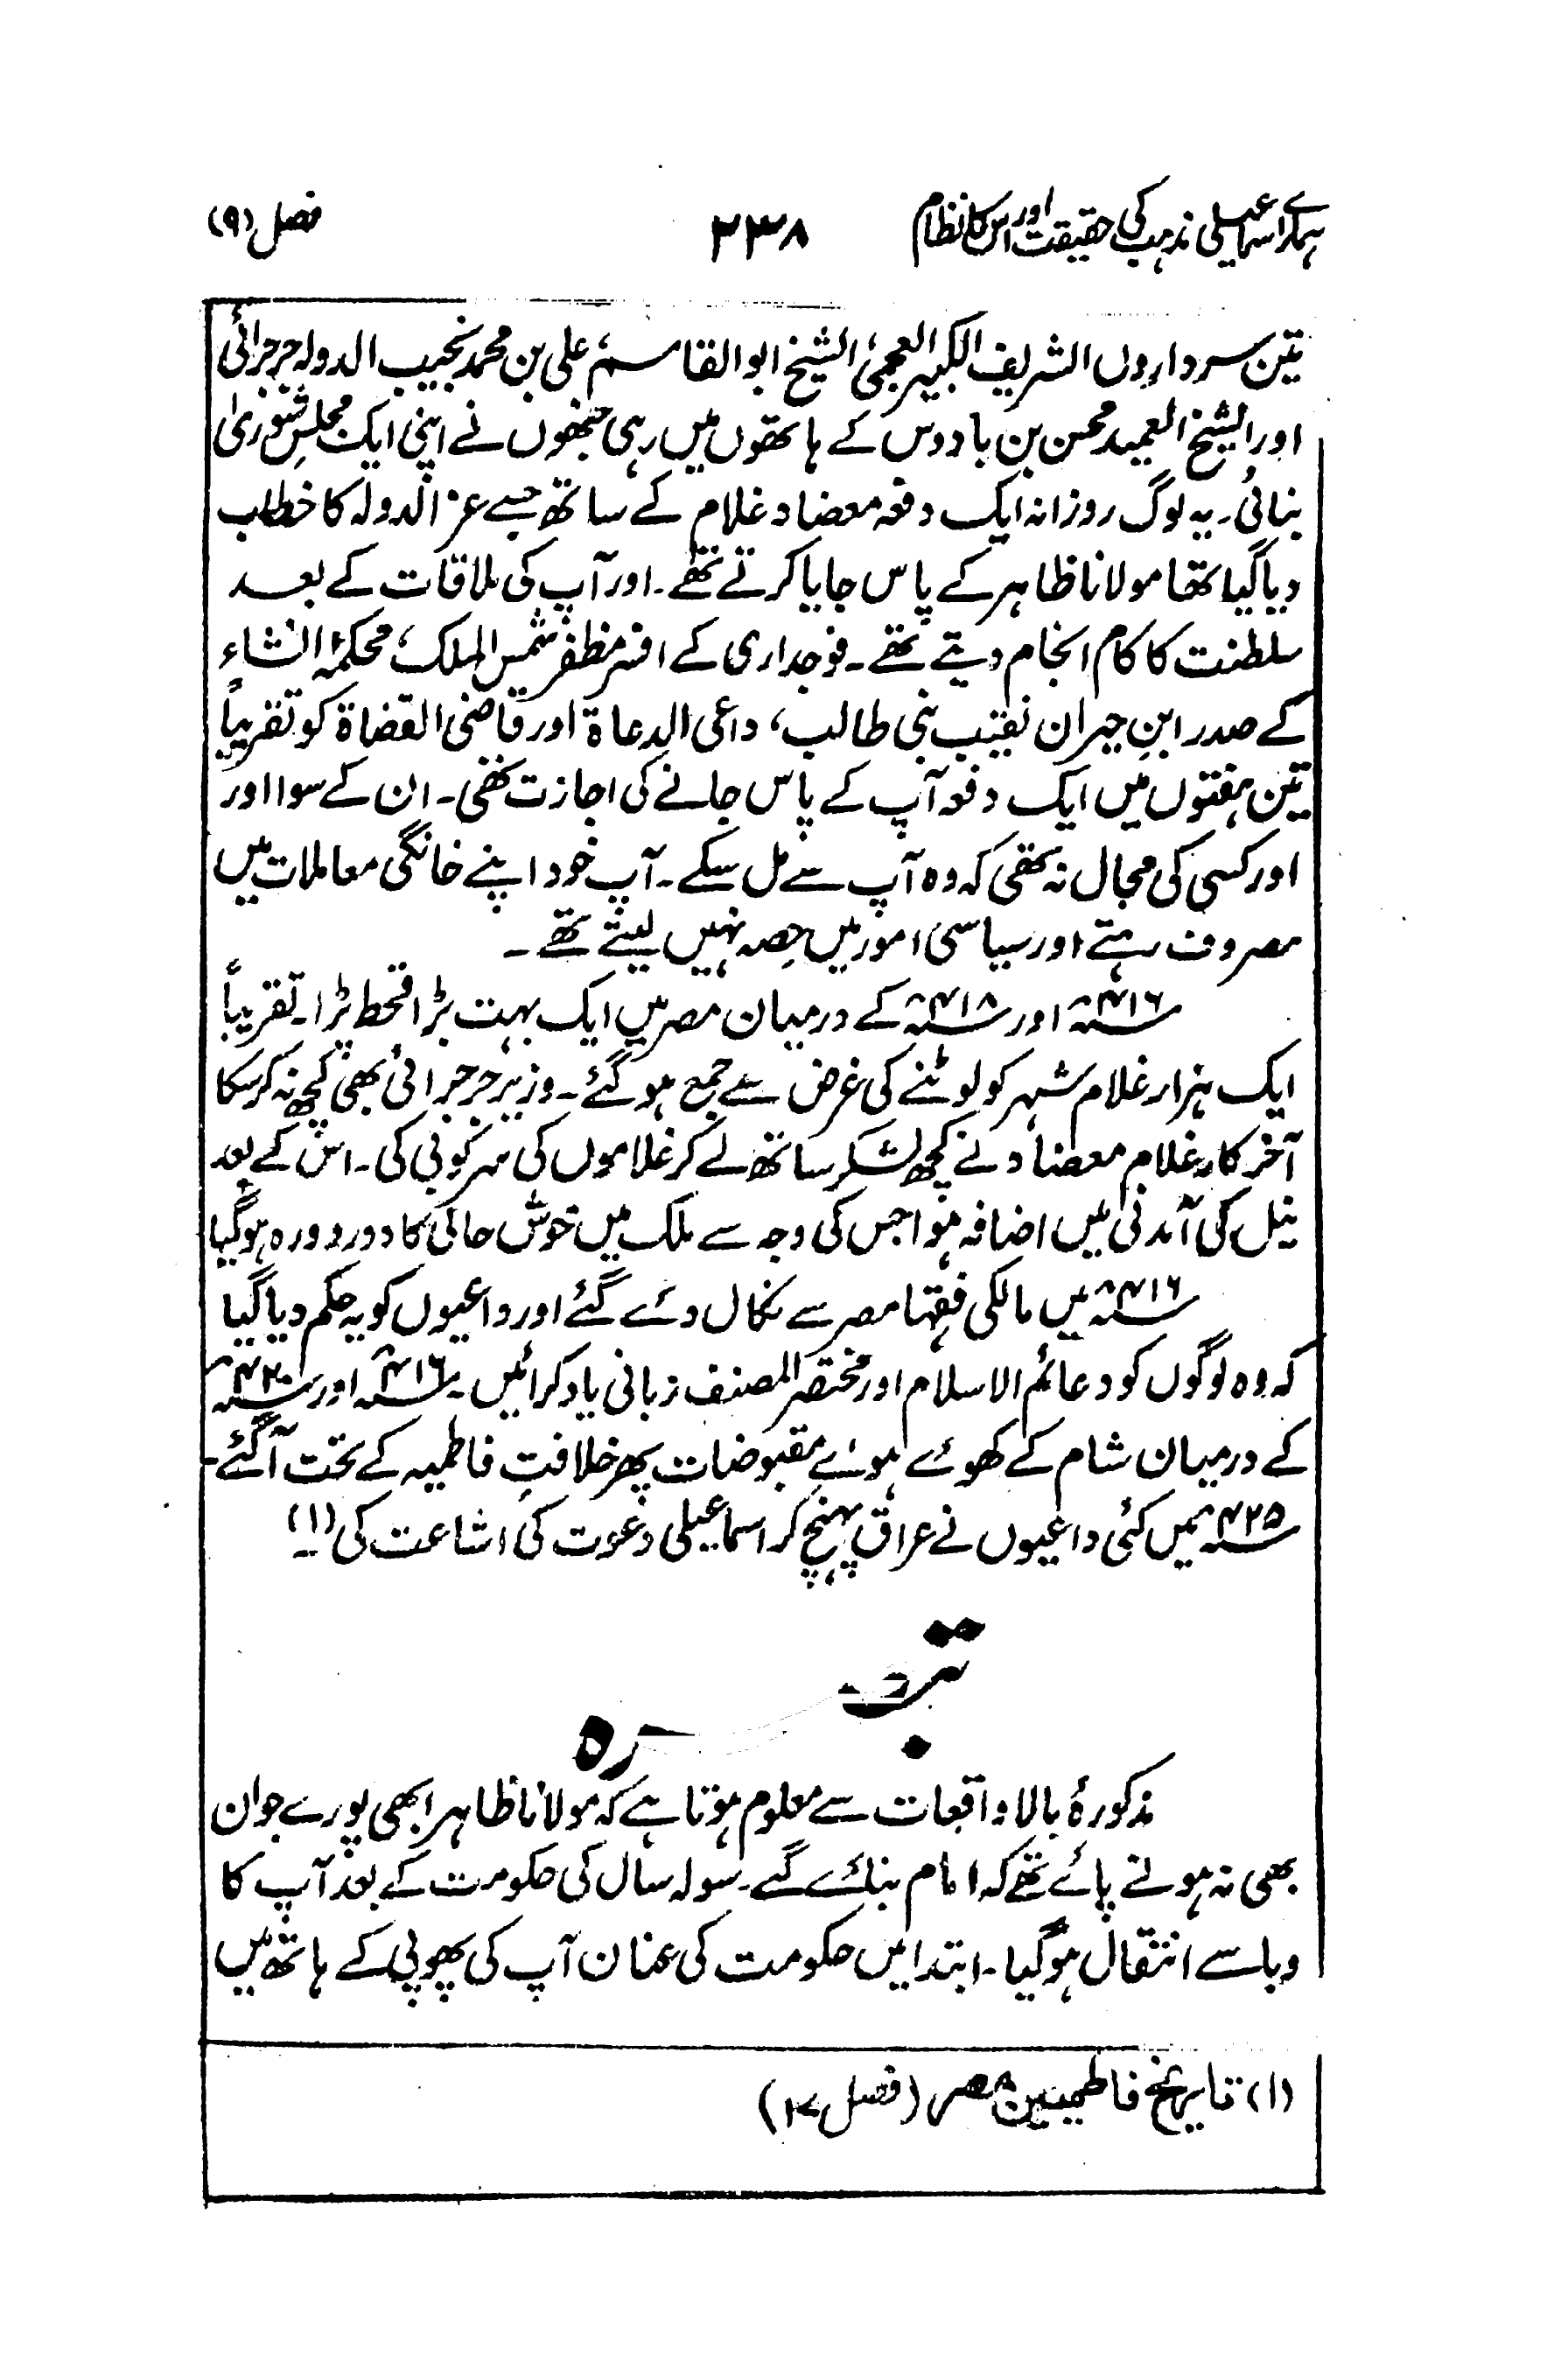 ہمارے اسماعیلی مذہب کی حقیقت اور اس کا نظام ۲۳۸ فصل (۹)
تین سرداروں الشریف الکبیر العجمی، الشیخ ابوالقاسم علی بن محمد نجیب الدولہ جرجرائی
اور الشیخ العمید محسن بن بادوس کے ہاتھوں میں رہی جنھوں نے اپنی ایک مجلسِ شوریٰ
بنائی۔ یہ لوگ روزانہ ایک دفعہ معضاد غلام کے ساتھ جسے عز الدولہ کا خطاب
دیا گیا تھا مولانا ظاہر کے پاس جایا کرتے تھے۔ اور آپ کی ملاقات کے بعد
سلطنت کا کام انجام دیتے تھے۔ فوجداری کے افسر مظفر شمس الملک، محکمۂ انشاء
کے صدر ابنِ جیران نقیب بنی طالب، داعی الدعاۃ اور قاضی القضاۃ کو تقریباً
تین ہفتوں میں ایک دفعہ آپ کے پاس جانے کی اجازت تھی۔ ان کے سوا اور
اور کسی کی مجال نہ تھی کہ وہ آپ سے مل سکے۔ آپ خود اپنے خانگی معاملات میں
مصروف رہتے اور سیاسی امور میں حصہ نہیں لیتے تھے۔
۴۱۶ھ اور ۴۱۸ھ کے درمیان مصر میں ایک بہت بڑا قحط پڑا۔ تقریباً
ایک ہزار غلام شہر کو لوٹنے کی غرض سے جمع ہو گئے۔ وزیر جرجرائی بھی کچھ نہ کر سکا
آخر کار غلام معضاد نے کچھ لشکر ساتھ لے کر غلاموں کی سرکوبی کی۔ اس کے بعد
نیل کی آمدنی میں اضافہ ہوا جس کی وجہ سے ملک میں خوش حالی کا دور دورہ ہو گیا
۴۱۶ھ میں مالکی فقہا مصر سے نکال دئے گئے اور داعیوں کو یہ حکم دیا گیا
کہ وہ لوگوں کو دعائم الاسلام اور مختصر المصنف زبانی یاد کرائیں۔ ۴۱۶ھ اور ۴۲۰ھ
کے درمیان شام کے کھوئے ہوئے مقبوضات پھر خلافتِ فاطمیہ کے تحت آ گئے۔
۴۲۵ھ میں کئی داعیوں نے عراق پہنچ کر اسماعیلی دعوت کی اشاعت کی (۱)۔
تبصرہ
مذکورۂ بالا واقعات سے معلوم ہوتا ہے کہ مولانا ظاہر ابھی پورے جوان
بھی نہ ہونے پائے تھے کہ امام بنائے گئے۔ سولہ سال کی حکومت کے بعد آپ کا
وبا سے انتقال ہو گیا۔ ابتدا میں حکومت کی عنان آپ کی پھوپی کے ہاتھ میں
(۱) تاریخ فاطمیین مصر (فصل ۲۷)